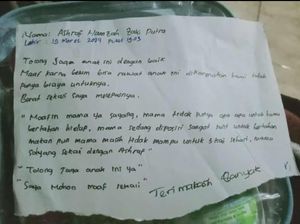 Nama: Ashraf Hamzah Zaki Putra
Lahir: 15 Maret 2024 Pukul
Tolong Jaga anak ini dengan baik
Maaf karna belum bisa rawat anak ini dikarenakan kami tidak
punya biaya untuknya.
Berat sekali saya melepasnya.
"Maafin mama ya sayang, mama tidak punya apa apa untuk kamu
bertahan hidup, mama sedang diposisi sangat sulit untuk bertahan
makan pun mama masih tidak mampu untuk sehari, mama
sayang sekali dengan Ashraf"
"Tolong Jaga anak ini ya"
"Saya Mohon maaf sekali"
Terimakasih Banyak